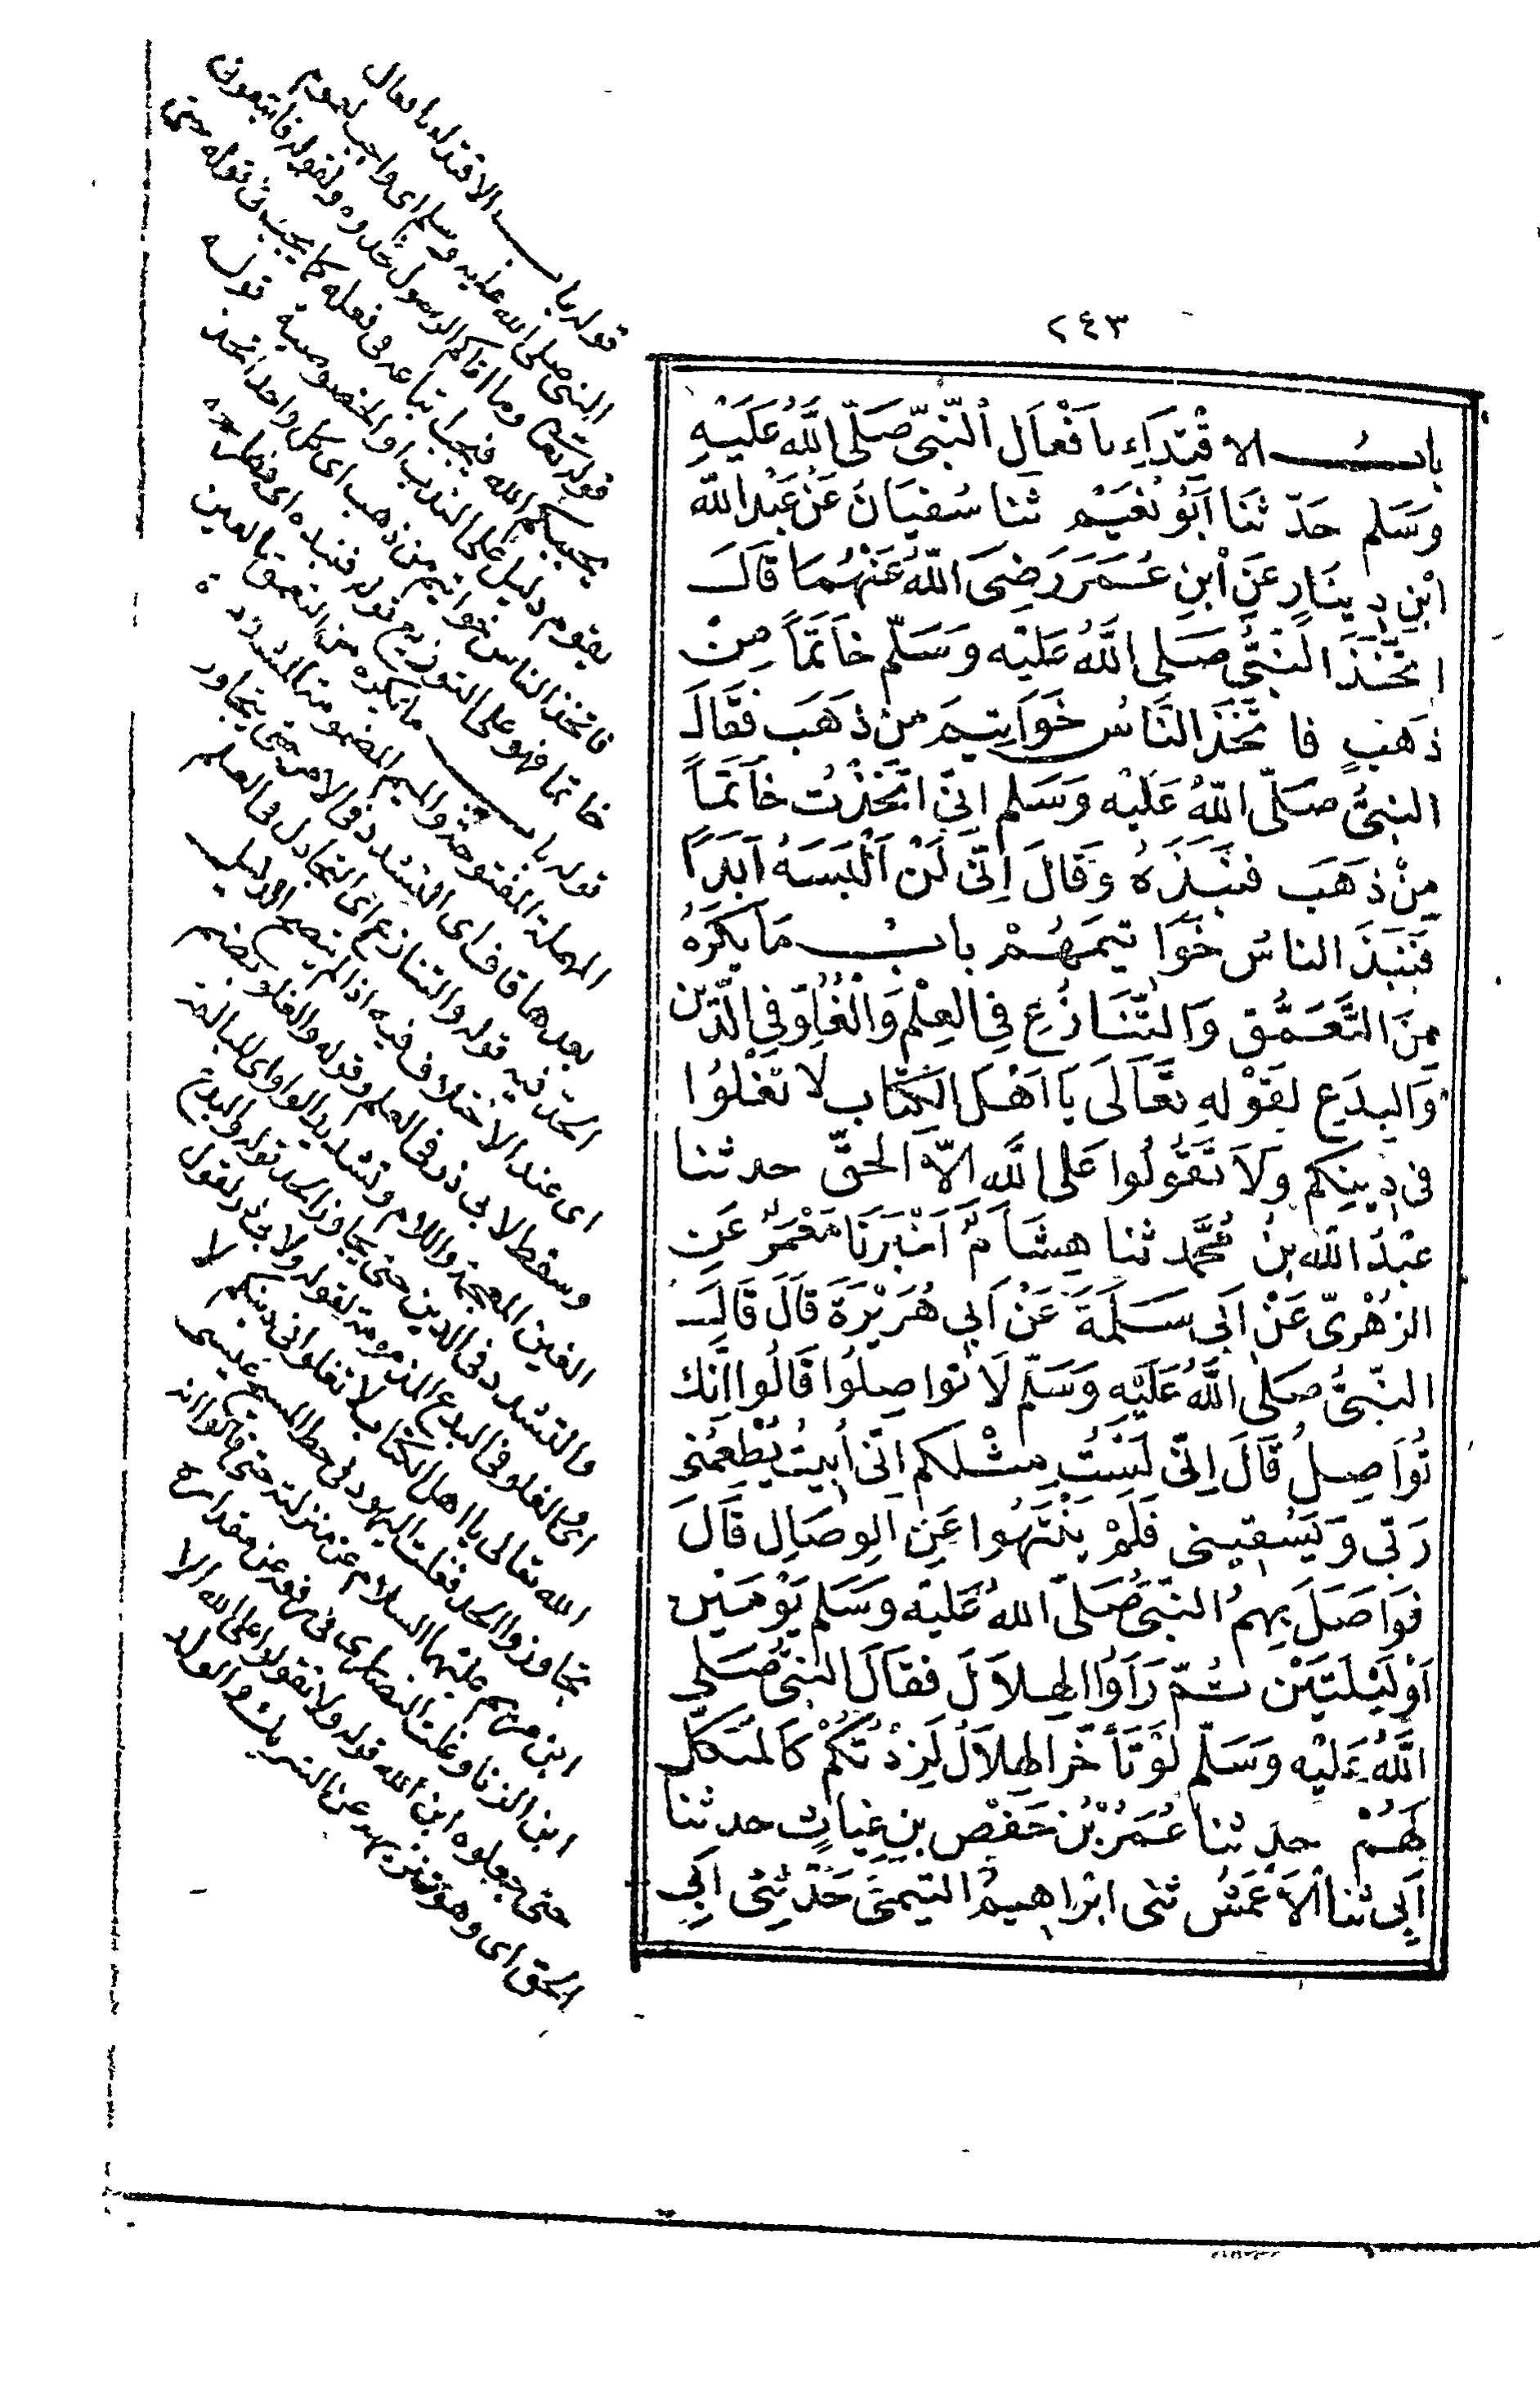 ٢٤٣
بابُ الاقْتِدَاءِ بأَفْعَالِ النَّبِيِّ صَلَّى اللَّهُ عَلَيْهِ
وَسَلم حَدّثنَا أَبُو نُعَيْم ثَنا سُفيَانَ عَنْ عَبْدِ اللَّه
ابْنِ دِينَارٍ عَنْ ابْنِ عُمَرَ رَضِىَ اللَّهُ عَنْهُمَا قَالَ
اتَّخَذَ النَّبِىُّ صَلى اللَّهُ عَلَيْه وَسَلّم خَاتَمًا مِنْ
ذَهَبٍ فاتَّخَذَ النَّاسُ خَوَاتِيمَ مِنْ ذَهَب فَقَالَ
النبِىُّ صَلَّى اللَّهُ عَلَيْه وَسَلم اِنّى اتَّخَذْتُ خَاتَمًا
مِنْ ذَهَب فنَبَذَهُ وَقَالَ اِنّى لَنْ اَلْبَسَهُ اَبَدًا
فَنَبَذَ الناسُ خَوَاتيمَهُمْ بابُ مَا يُكْرَهُ
مِنَ التَّعَمُّق وَالتَّنَازُعِ فِى العِلْمِ وَالْغُلُوِّ فِى الدّين
وَالبِدَعِ لِقَوْلِهِ تَعَالَى يَا اَهْلَ الكِتَاب لا تَغْلُوا
فى دِينِكم وَلاَ تَقُولُوا عَلى اللَّه اِلاّ الحَقّ حدثنا
عبْدُ اللَّه بنُ مُحَمَّد ثنا هِشَامٌ اَخْبَرَنَا مَعْمَرٌ عَنِ
الزُهْرِىّ عَنْ اَبى سَلَمَةَ عَنْ اَبِى هُرَيْرَةَ قَالَ قَالَ
النَّبىُّ صَلى اللَّهُ عَلَيْه وَسَلّم لاَ تواصِلُوا قَالُوا اِنَّك
تُوَاصِلُ قَالَ اِنِّى لَسْتُ مِثْلَكم اِنّى اُبِيتُ يُطْعِمُنِى
رَبّى وَيَسْقِينى فَلَمْ يَنْتَهُوا عَنِ الوِصَالِ قَالَ
فوَاصَلَ بِهِمُ النَّبىُّ صَلَّى اللهُ عَليْه وَسَلم يَوْمَيْن
اَوْ لَيْلَتَيْن ثُمّ رَاَوُا الهِلاَلَ فقَالَ النبِىُّ صَلى
اللَّهُ عَلَيْه وَسَلّم لَوْ تَأَخّرَ الهِلاَلُ لَزِدْتُكُمْ كَالمُنَكِّل
لَهُمْ حدثنا عُمَرُ بْنُ حَفْص بنِ غِيَاثٍ حدثنا
اَبِى ثنا الاَعْمَشُ ثنى ابْرَاهِيمُ التيمىّ حَدّثنِى اَبِى
قوله باب الاقتداء بافعال
النبى صلى الله عليه وسلم اى واجب لعموم
قوله تعالى وما اتاكم الرسول فخذوه ولقوله فاتبعونى
يحببكم الله فيجب اتباعه فى فعله كما يجب فى قوله حتى
يقوم دليل على الندب او الخصوصية قوله
فاتخذ الناس خواتيم من ذهب اى كل واحد اتخذ
خاتما فهو على التوزيع قوله فنبذه اى
قوله باب ما يكره من التعمق بالعين
المهملة المفتوحة والميم المضمومة المشددة
بعدها قاف اى التشدد فى الامر حتى يتجاوز
الحد فيه قوله والتنازع اى التجادل فى العلم
اى عند الاختلاف فيه اذا لم يتضح الدليل
وسقط لابى ذر فى العلم وقوله والغلو بضم
الغين المعجمة واللام وتشديد الواو اى المبالغة
والتشدد فى الدين حتى يتجاوز الحد قوله والبدع
اى الغلو فى البدع المذمومة لقوله ولابى ذر لقول
الله تعالى يا اهل الكتاب لا تغلوا فى دينكم لا
تجاوزوا الحد فغلت اليهود فى حط المسيح عيسى
ابن مريم عليهما السلام عن منزلته حتى قالوا انه
ابن الزنا وغلت النصارى فى رفعه عن مقداره
حتى جعلوه ابن الله قوله ولا تقولوا على الله الا
الحق اى وهو تنزيهه عن الشريك والولد